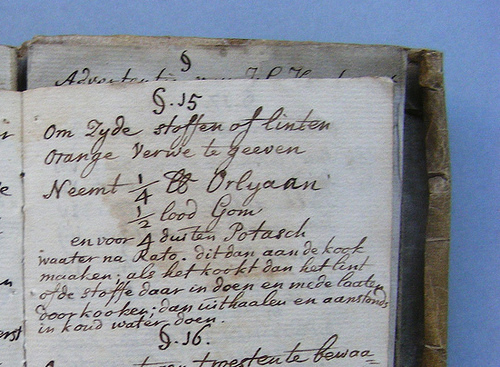 §
§. 15
Om Zyde stoffen of linten
orange Verwe te geeven
Neemt 1/4 ℔ Orlyaan
1/2 lood Gom
en voor 4 duiten Potasch
waater na Rato. dit dan aan de kook
maaken; als het kookt dan het lint
of de stoffe daar in doen en mede laaten
doorkooken; dan uithaalen en aanstonds
in koud water doen.
§. 16.
te bewaa=